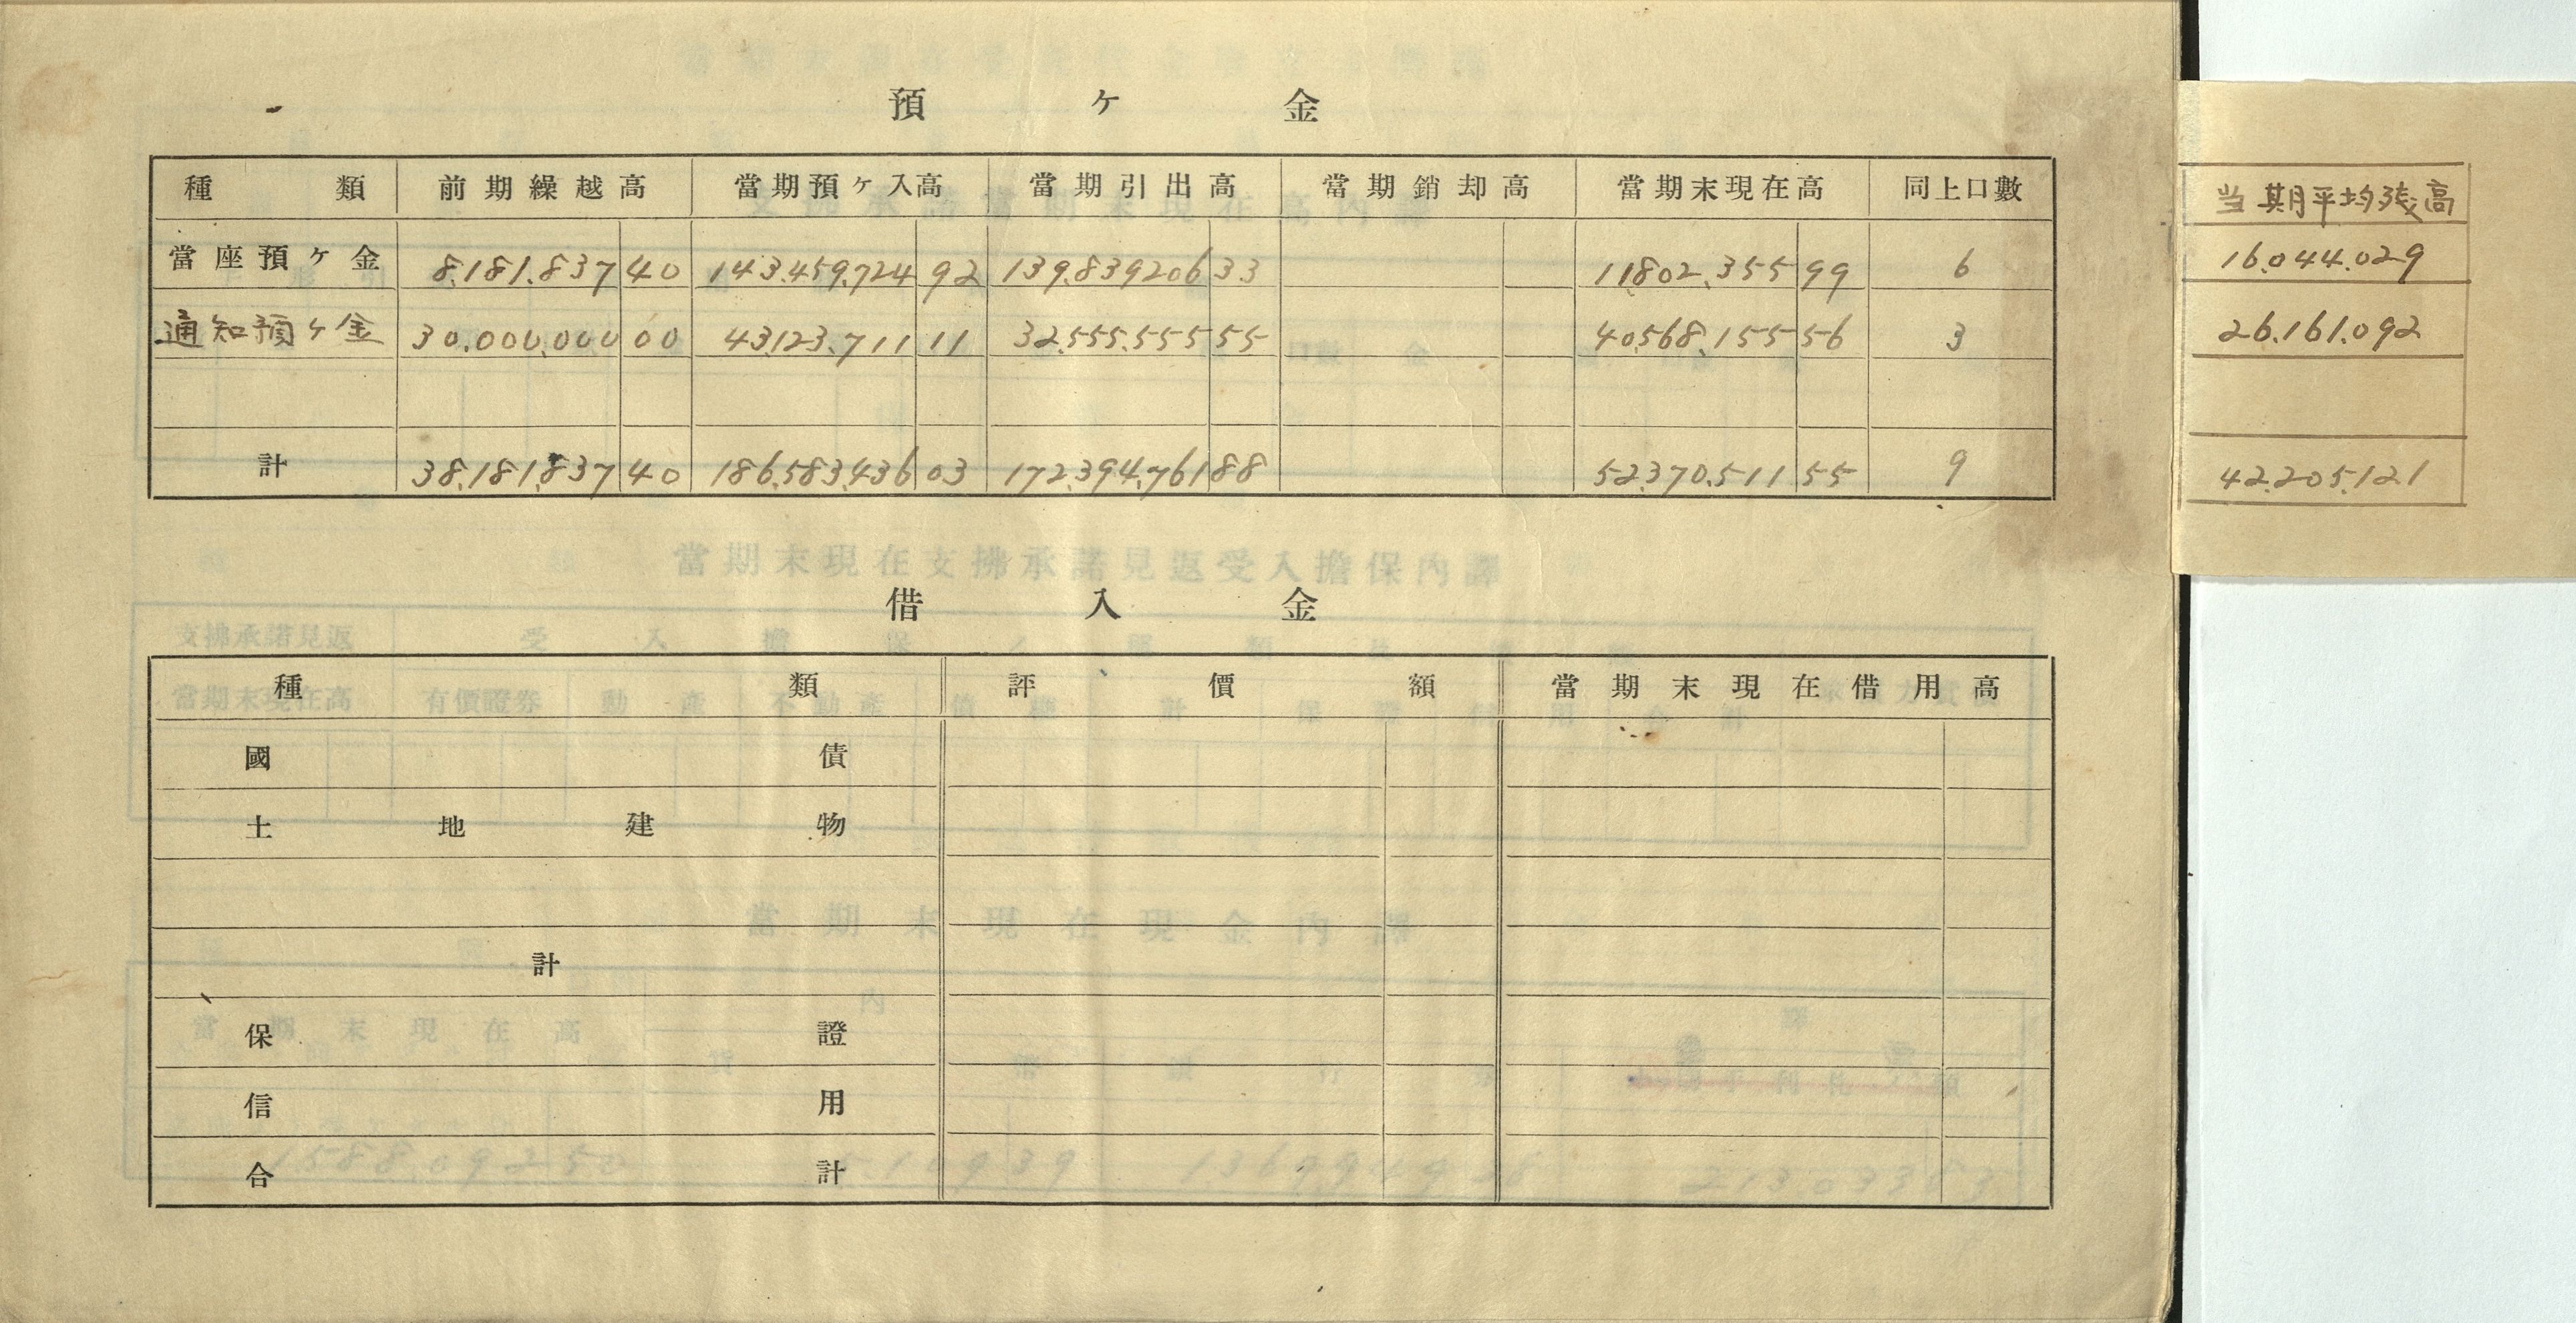 預ヶ金
種類 前期繰越高 當期預ヶ入高 當期引出高 當期銷却高 當期末現在高 同上口數 当期平均残高
當座預ヶ金 8,181,837 40 143,459,724 92 139,839,206 33 11,802,355 99 6 16,044,029
通知預ヶ金 30,000,000 00 43,123,711 11 32,555,555 55 40,568,155 56 3 26,161,092
計 38,181,837 40 186,583,436 03 172,394,761 88 52,370,511 55 9 42,205,121
借入金
種類 評價額 當期末現在借用高
國債
土地建物
計
保證
信用
合計